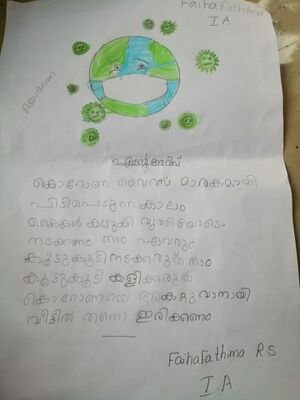 Faiha fathima
I A
കൊറോണ
എന്റെ അറിവ്
കൊറോണ വൈറസ് മാരകമായി
പിടിപെടുന്ന കാലം
കൈകൾ കഴുകി വൃത്തിയോടെ
നടക്കണം നാം ഏവരും
കൂട്ടുകൂടി നടക്കരുത് നാം
കൂട്ടുകൂടി കളിക്കരുത്
കൊറോണയെ അകറ്റുവാനായി
വീട്ടിൽ തന്നെ ഇരിക്കണം
Faiha Fathima R S
I. A